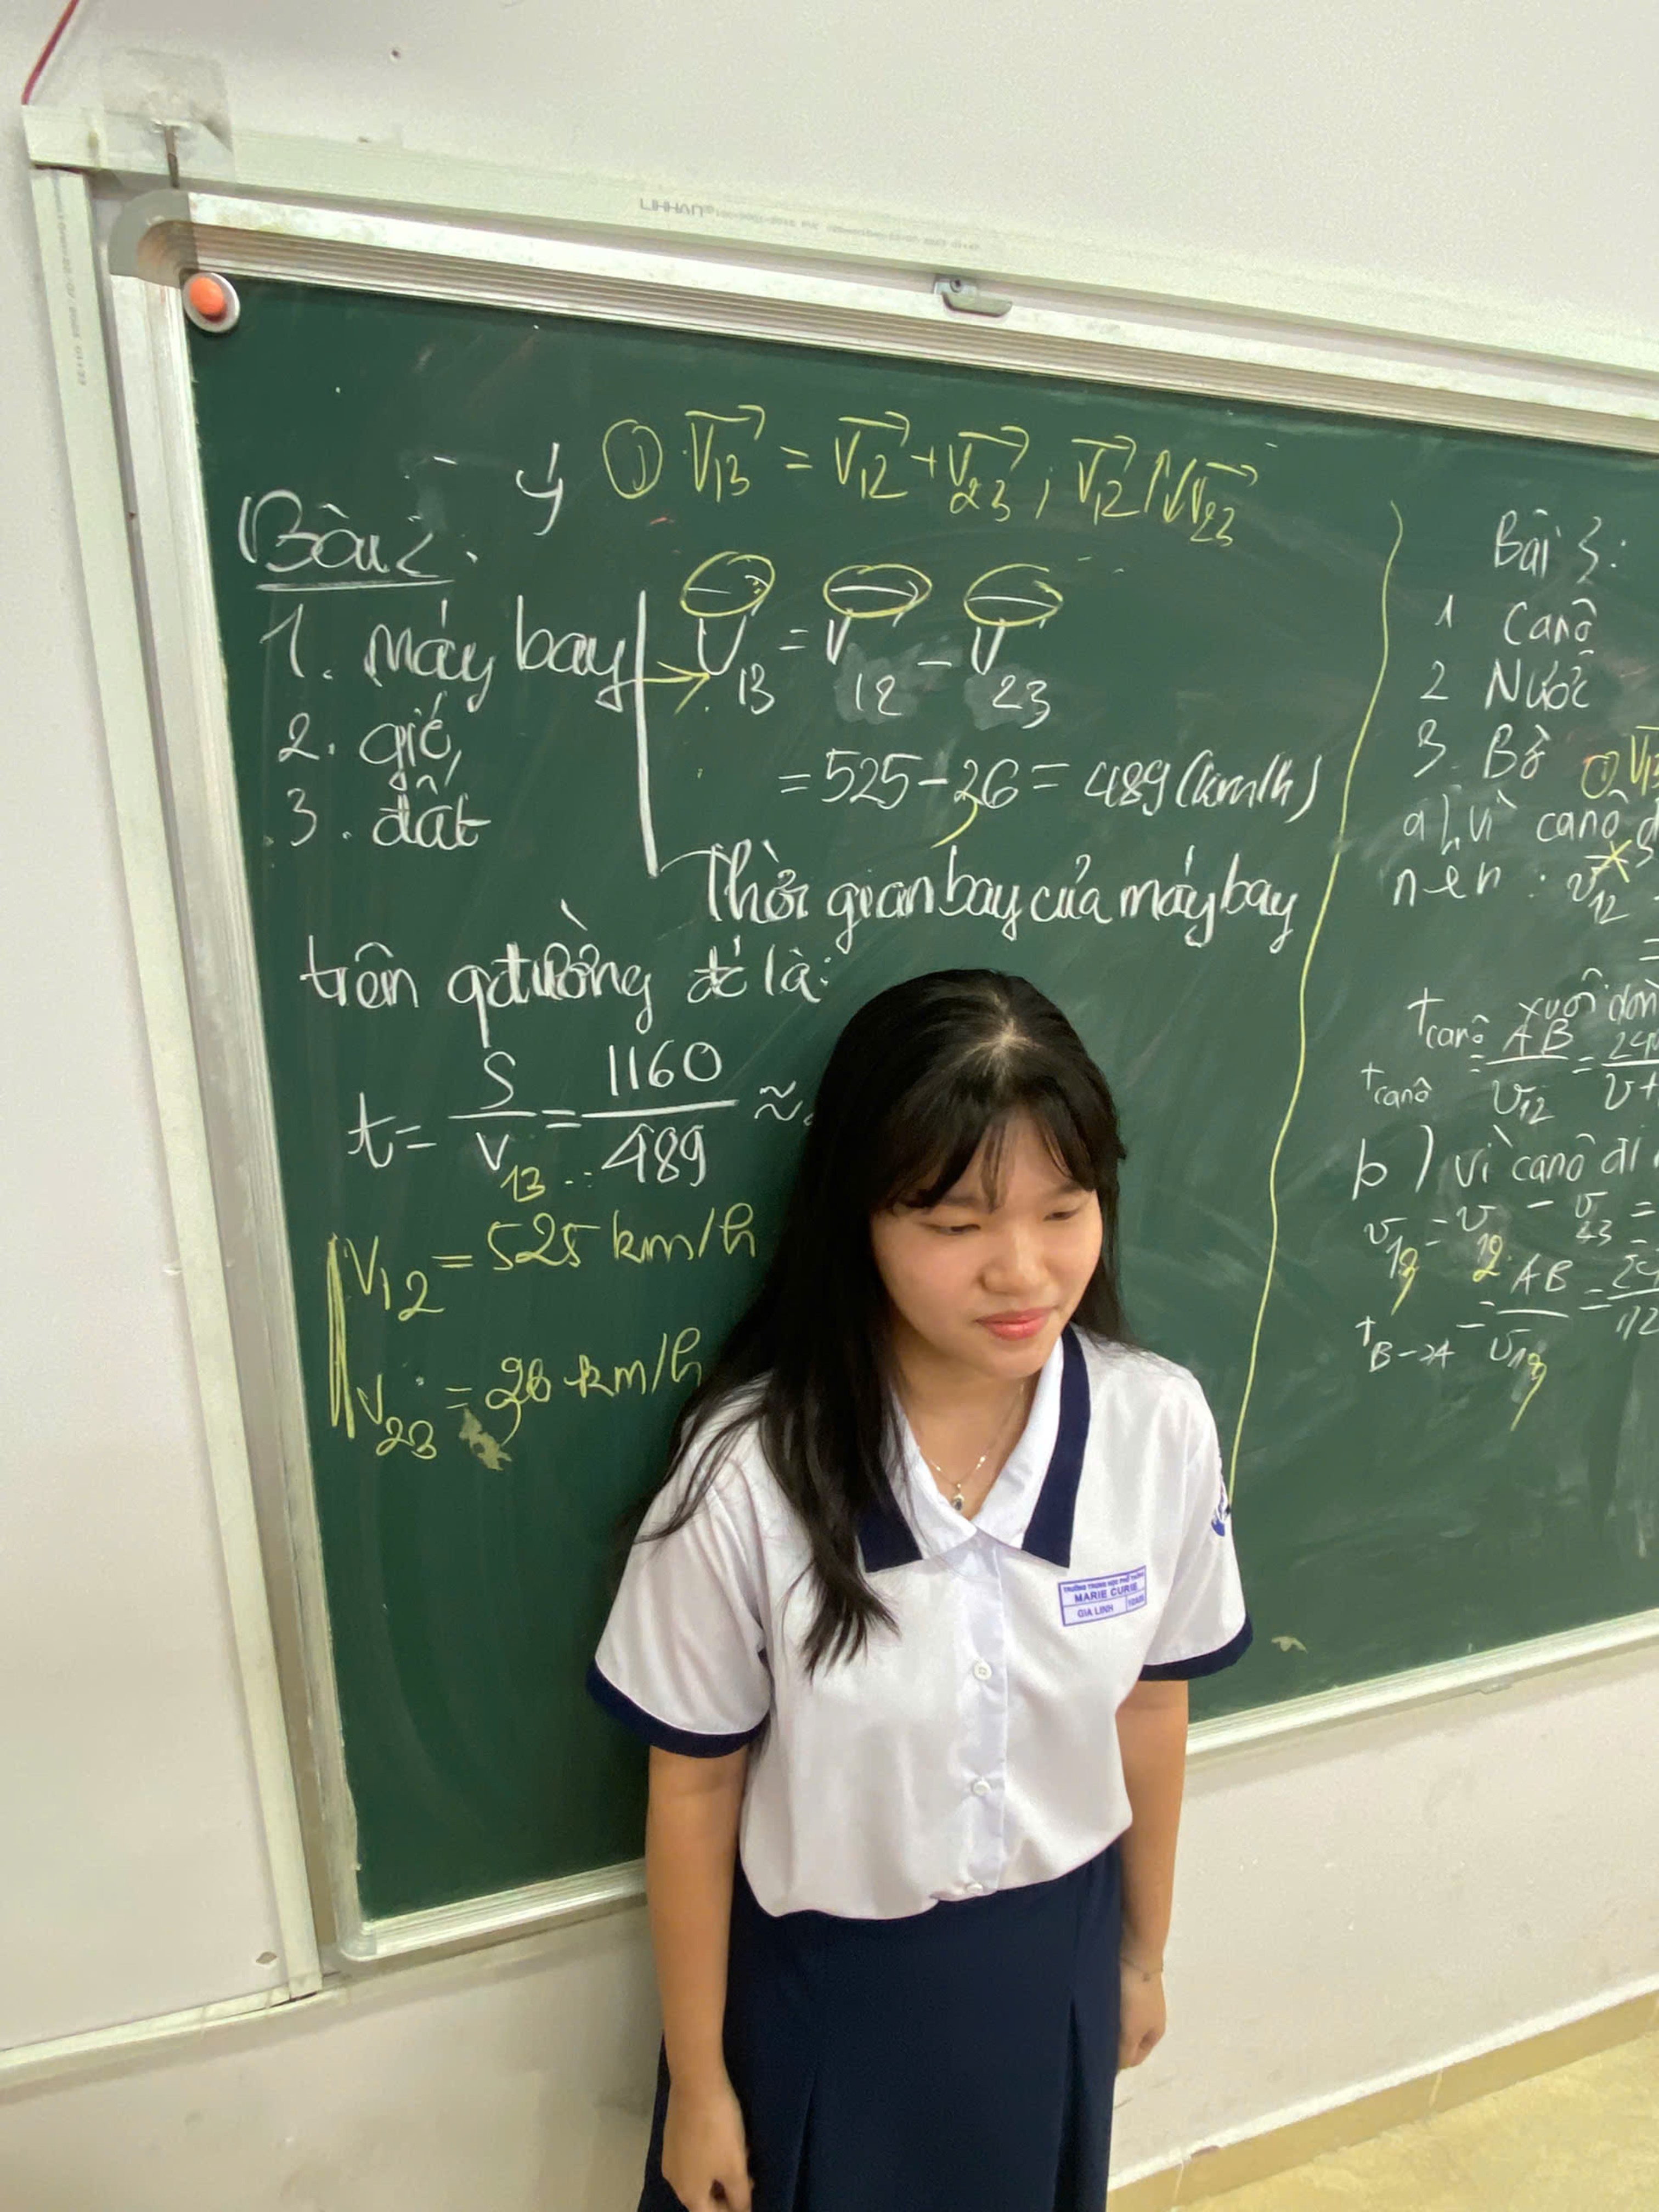 LIHHAN
ý ① V₁₃ = V₁₂ + V₂₃ ; V₁₂ ↑↓ V₂₃
Bài 2.
1. máy bay
2. gió
3. đất
V₁₃ = V₁₂ - V₂₃
= 525 - 36 = 489 (km/h)
Thời gian bay của máy bay
trên qđường đó là:
t = S/V₁₃ = 1160/489 ≈
V₁₂ = 525 km/h
V₂₃ = 36 km/h
Bài 3:
1 Canô
2 Nước
3 Bờ ①
a), vì canô
nên : v₁₂
xuôi
t canô = AB/v₁₂ =
t canô
b) vì canô đi
v₁₃ = v₁₂ - v₂₃ =
t B→A = AB/v₁₃ =
TRƯỜNG TRUNG HỌC PHỔ THÔNG
MARIE CURIE
GIA LINH